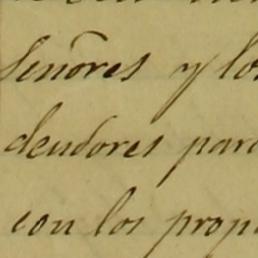 Señores y los
deudores para
con los prop